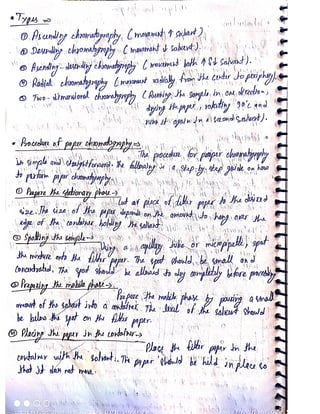 • Types →
① Ascending chromatography (movement ↑ solvent).
② Descending chromatography (movement ↓ solvent).
③ Ascending-descending chromatography (movement both ↑↓ solvent).
④ Radial chromatography (movement radially from the center to periphery).
⑤ Two-dimensional chromatography (Running the sample in one direction,
drying the paper, rotating 90°c and
runs it again in a second solvent).
• Procedure of paper chromatography →
The procedure for paper chromatography
is simple and straightforward. The following is a step-by-step guide on how
to perform paper chromatography.
① Prepare the stationary phase →
Cut a piece of filter paper to the desired
size. The size of the paper depends on the amount to hang over the
edge of the container holding the solvent.
② Spotting the sample →
Using a capillary tube or micropipette, spot
the mixture onto the filter paper. The spot should be small and
concentrated. The spot should be allowed to dry completely before proceeding.
③ Preparing the mobile phase →
Prepare the mobile phase by pouring a small
amount of the solvent into a container. The level of the solvent should
be below the spot on the filter paper.
④ Placing the paper in the container →
Place the filter paper in the
container with the solvent. The paper should be held in place so
that it does not move.